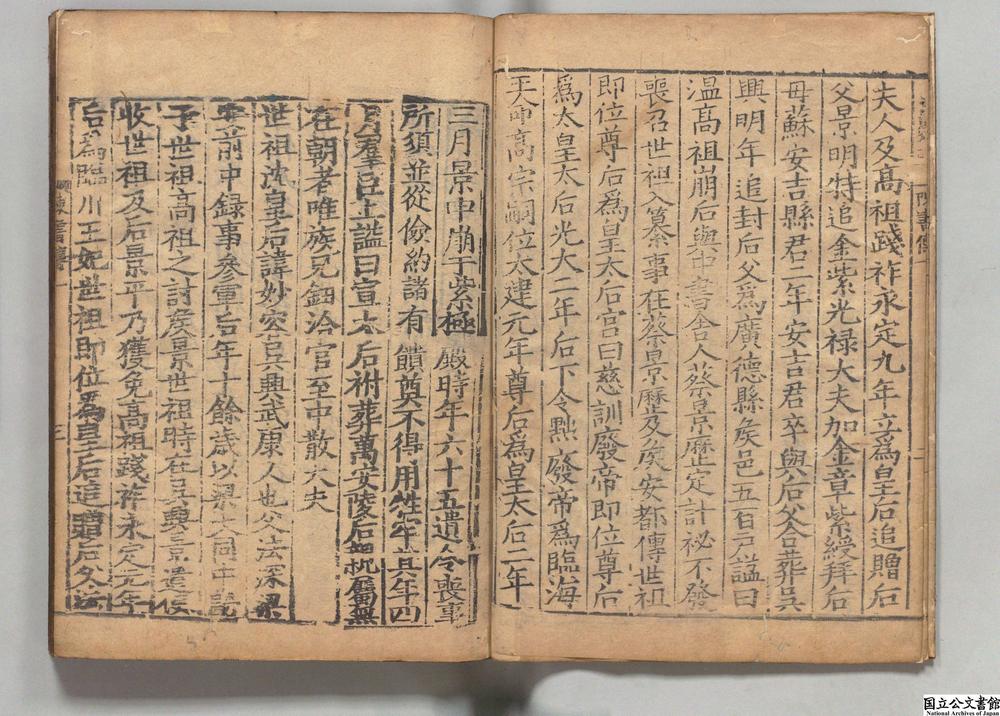 夫人及髙祖踐祚永定九年立爲皇后追贈后
父景明特追金紫光禄大夫加金章紫綬拜后
母蘇安吉縣君二年安吉君卒與后父合葬吳
興明年追封后父爲廣德縣矦邑五百户謚曰
温髙祖崩后與中書舍人蔡景歴定計祕不發
喪召世祖入纂事在蔡景歴及矦安都傳世祖
即位尊后爲皇太后宫曰慈訓廢帝即位尊后
爲太皇太后光大二年后下令黜廢帝爲臨海
王命髙宗嗣位太建元年尊后爲皇太后二年
三月景申崩于紫極殿時年六十五遺令喪事
所須並從儉約諸有饋奠不得用牲牢其年四
月羣臣上謚曰宣太后祔葬萬安陵后親屬無
在朝者唯族兄鈿洽官至中散大夫
世祖沈皇后諱妙容吳興武康人也父法深梁
安前中録事參軍后年十餘歲以梁大同中歸
于世祖高祖之討矦景世祖時在吳興景遣使
收世祖及后景平乃獲免高祖踐祚永定元年
后爲臨川王妃世祖即位爲皇后追贈后父法
國立公文書館
National Archives of Japan